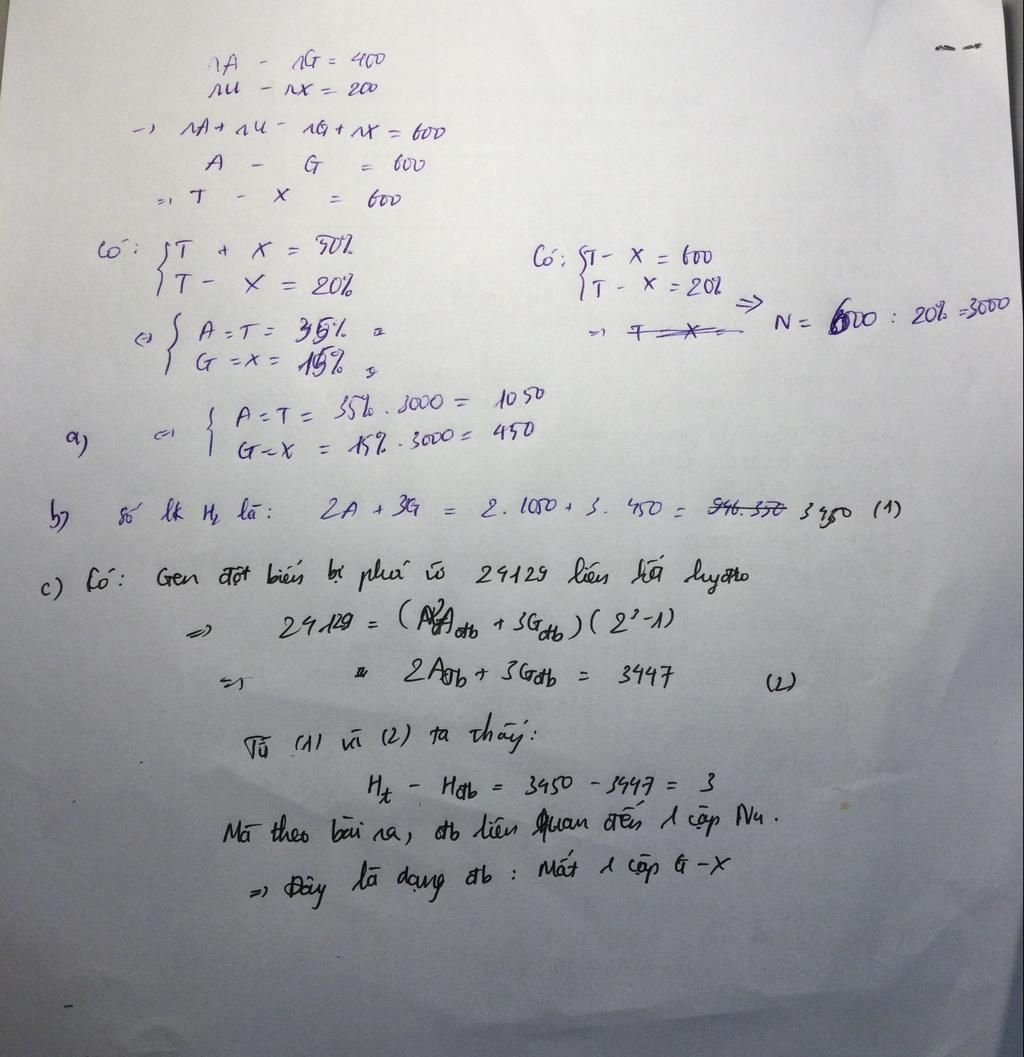 rA - rG = 400
rU - rX = 200
→ rA + rU - rG + rX = 600
A - G = 600
⇒ T - X = 600
Có: { T + X = 50%
T - X = 20%
⇔ { A = T = 35%
G = X = 15%
Có: { T - X = 600
T - X = 20%
⇒ T - X =
⇒ N = 600 : 20% = 3000
a) ⇔ { A = T = 35% . 3000 = 1050
G = X = 15% . 3000 = 450
b) số lk H2 là: 2A + 3G = 2. 1050 + 3. 450 = 3450 (1)
c) Có: Gen đột biến bị phá vỡ 24129 liên kết hyđro
⇒ 24129 = (2Ađb + 3Gđb)(2³-1)
⇒ 2Ađb + 3Gđb = 3447 (2)
Từ (1) và (2) ta thấy:
Ht - Hđb = 3450 - 3447 = 3
Mà theo bài ra, đb liên quan đến 1 cặp Nu.
⇒ Đây là dạng đb: Mất 1 cặp G-X